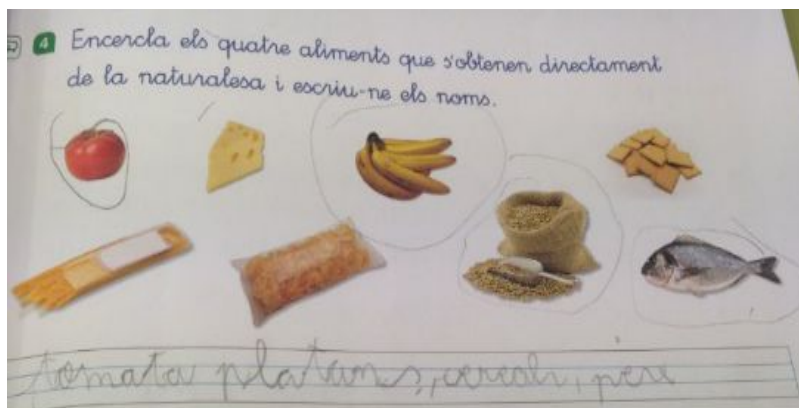 4 Encercla els quatre aliments que s'obtenen directament
de la naturalesa i escriu-ne els noms.
tomata platans, cereals, peix